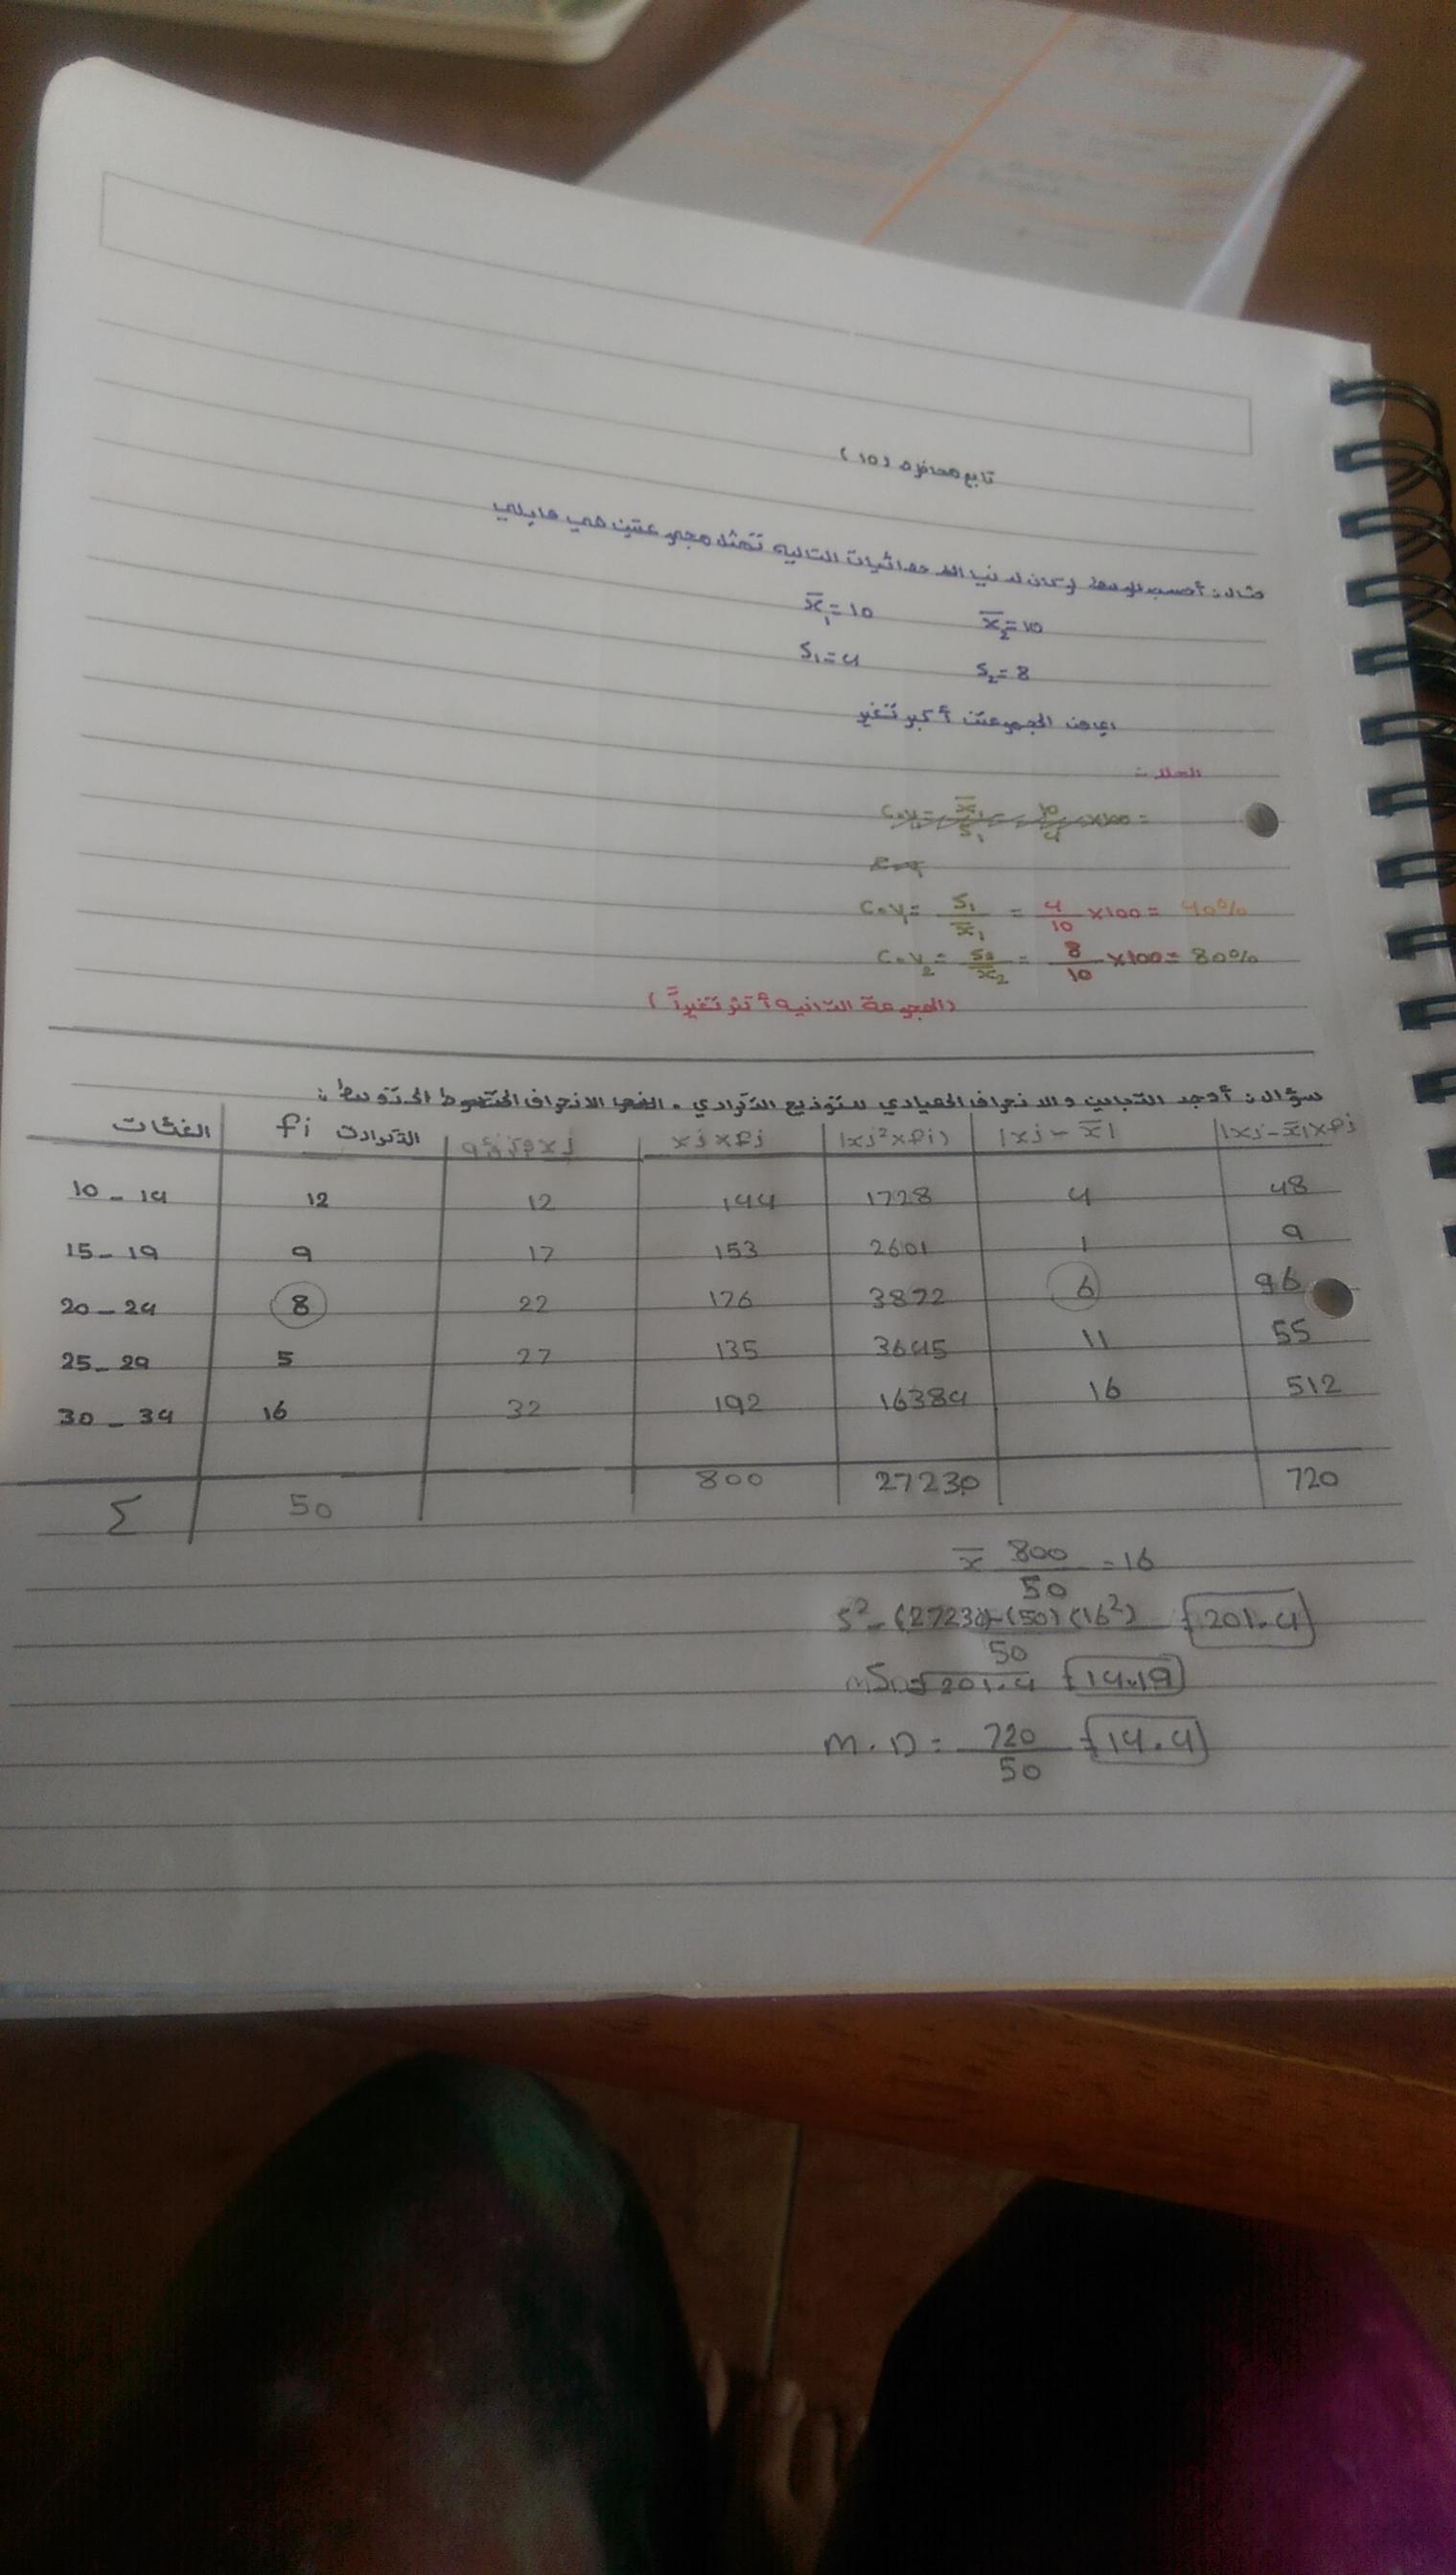 تابع محاضره (10)
مثال: أحسب لو كان لدينا الاحصائيات التاليه تمثل مجموعتين هي مايلي
x̄₁=10 x̄₂=10
S₁=4 S₂=8
اي من المجموعتين أكبر تغير
الحل:
C.V₁= x̄₁/S₁ = 10/4 ×100 =
C.V₁= S₁/x̄₁ = 4/10 ×100= 40%
C.V₂= S₂/x̄₂ = 8/10 ×100= 80%
(المجموعة الثانيه أكثر تغيراً)
سؤال: أوجد التباين والانحراف المعياري للتوزيع التكراري . الانحراف المتوسط :
الفئات fi التكرارات xj xj×fj |xj²×fi) |xj-x̄| |xj-x̄|×fj
10-14 12 12 144 1728 4 48
15-19 9 17 153 2601 1 9
20-24 8 22 176 3872 6 96
25-29 5 27 135 3645 11 55
30-34 16 32 192 16384 16 512
Σ 50 800 27230 720
x̄ 800/50 =16
S²=(27230)-(50)(16²)/50 =201.4
S=√201.4 =14.19
M.D= 720/50 =14.4